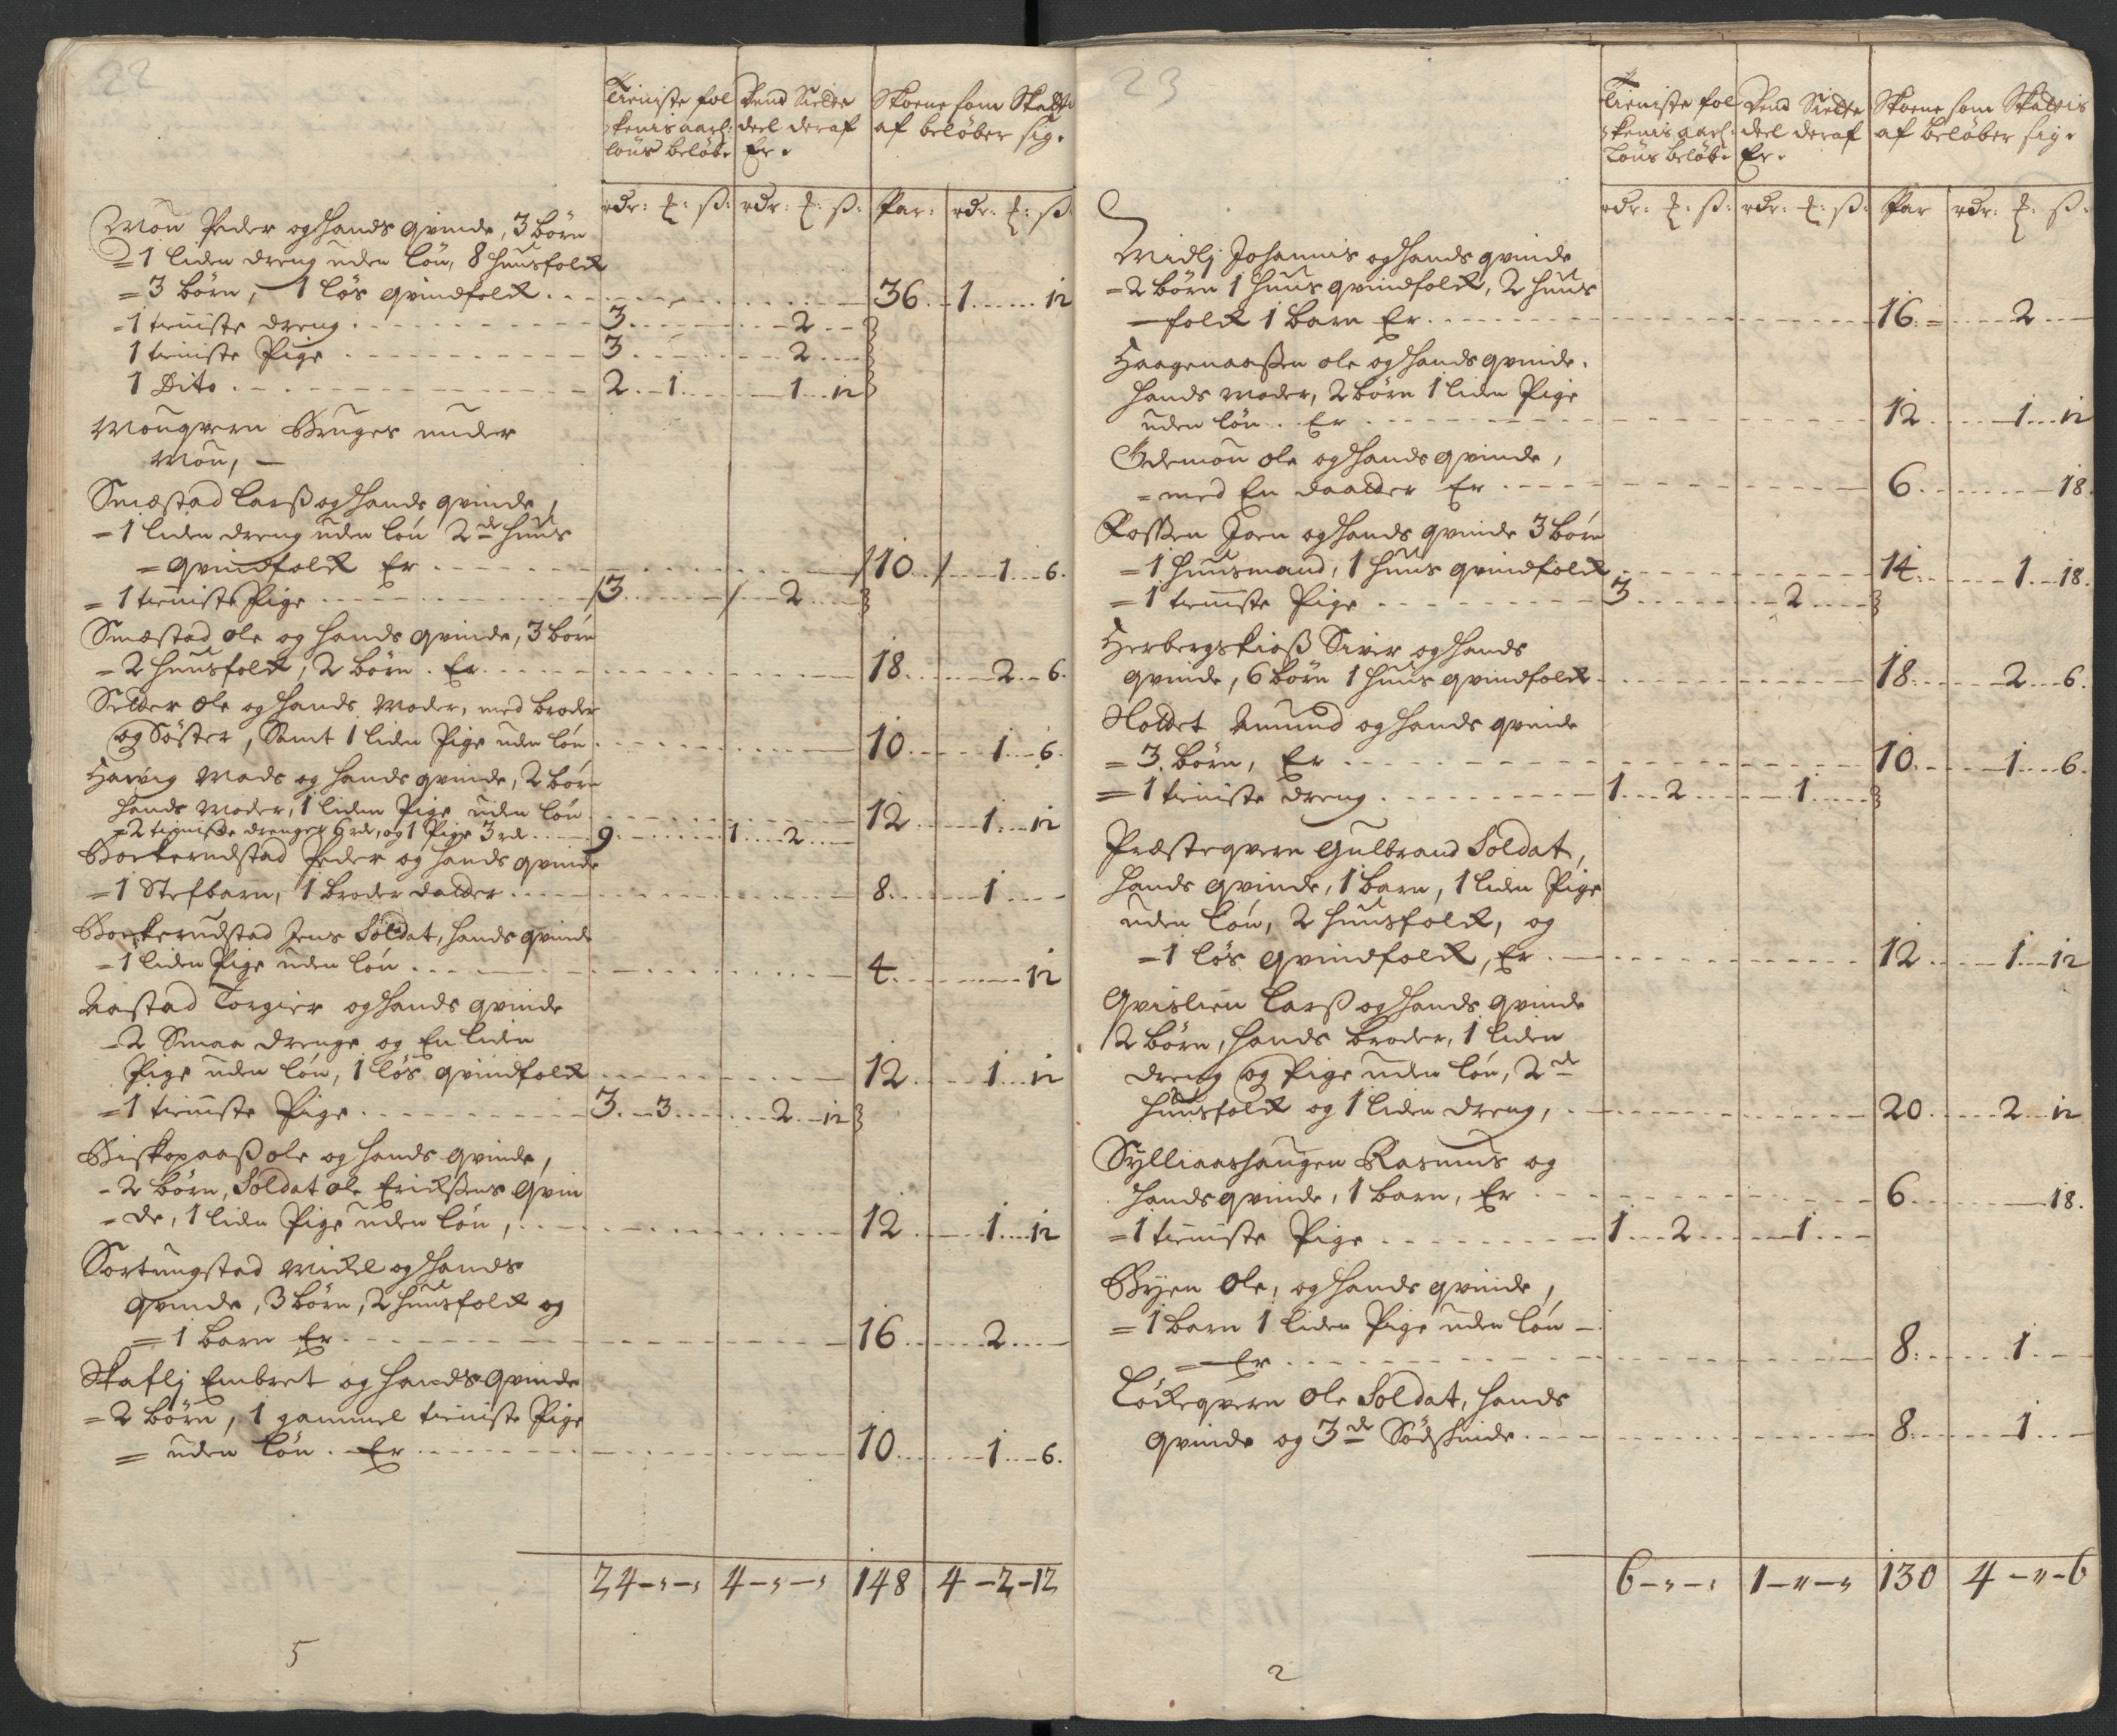 22
Tieniste fol Dend Siette Skoene som Skatt
kenis aarl: deel deraf af beløber sig.
løns beløb. Er.
rdr: ß: rdr: ß: Par: rdr: ß:
Moun Peder og hands qvinde, 3 børn
= 1 liden dreng uden løn, 8 huusfolk
= 3 børn, 1 løs qvindfolk . . 36 . . 1 . . . 12
= 1 tieniste dreng . . . 3 . . . 2 . .
1 tieniste Pige . . . 3 . . . 2 . .
1 Dito . . . 2 . . 1 . . . 1 . . 12
Mouqvern Bruges under
Moun, —
Smestad Larß og hands qvinde,
= 1 liden dreng uden løn 2de huus
= qvindfolk Er . . . 10 . . . 1 . . 6.
= 1 tieniste Pige . . . 3 . . . 2 . .
Smestad Ole og hands qvinde, 3 børn
= 2 huusfolk, 2 børn . Er . . . 18 . . . 2 . . 6.
Selder Ole og hands moder, med broder
og Søster, Samt 1 liden Pige uden løn . . . 10 . . . 1 . . 6.
Harvig Mads og hands qvinde, 2 børn
hands moder, 1 liden Pige uden løn . . . 12 . . . 1 . . 12
= 2 tieniste drenger 6 rd, og 1 Pige 3 rd . . . 9 . . . 1 . . 2 . .
Borkerudstad Peder og hands qvinde
= 1 Stefbarn, 1 broder datter . . . 8 . . . 1 . .
Borkerudstad Jens Soldat, hands qvinde
= 1 liden Pige uden løn . . . 4 . . . 12
Aastad Torgier og hands qvinde
= 2 Smaa drenge og En liden
Pige uden løn, 1 løs qvindfolk . . . 12 . . . 1 . . 12
= 1 tieniste Pige . . . 3 . . 3 . . . 2 . . 12
Biskopaaß Ole og hands qvinde,
- 2 børn, Soldat Ole Erichsens qvin
= de, 1 liden Pige uden løn, . . . 12 . . . 1 . . 12
Sortungstad Mickel og hands
qvinde, 3 børn, 2 huusfolk og
= 1 barn Er . . . 16 . . . 2 . .
Skaflj Embret og hands qvinde
= 2 børn, 1 gammel tieniste Pige
= uden løn . Er . . . 10 . . . 1 . . 6.
24 - " - " 4 - " - " 148 4 - 2 - 12
5
23
Tieniste fol Dend Siette Skoene som Skattis
kenis aarl: deel deraf af beløber sig.
Løns beløb. Er.
rdr: ß: rdr: ß: Par rdr: ß:
Midlj Johannis og hands qvinde
= 2 børn 1 huus qvindfolk, 2 huus
= folk 1 barn Er . . . 16 . . . 2 . .
Haagenaasen Ole og hands qvinde.
hands moder, 2 børn 1 liden Pige
uden løn . Er . . . 12 . . . 1 . . 12
Ødemoun Ole og hands qvinde,
= med En daatter Er . . . 6 . . . 18.
Joen og hands qvinde 3 børn
= 1 huusmand, 1 huus qvindfolk . . . 14 . . . 1 . . 18.
= 1 tieniste Pige . . . 3 . . . 2 . .
Herbergskioß Siver og hands
qvinde, 6 børn 1 huus qvindfolk . . . 18 . . . 2 . . 6.
Amund og hands qvinde
= 3 børn, Er . . . 10 . . . 1 . . 6.
= 1 tieniste dreng . . . 1 . . 2 . . . 1 . .
Præsteqvern Gulbrand Soldat,
hands qvinde, 1 barn, 1 liden Pige
uden løn, 2 huusfolk, og
= 1 løs qvindfolk, Er . . . 12 . . . 1 . . 12
Qvislien Larß og hands qvinde
2 børn, hands broder, 1 liden
dreng og Pige uden løn, 2de
huusfolk og 1 liden dreng, . . . 20 . . . 2 . . 12
Sylliaashaugen Rasmus og
hands qvinde, 1 barn, Er . . . 6 . . . 18.
= 1 tieniste Pige . . . 1 . . 2 . . . 1 . .
Byen Ole, og hands qvinde,
= 1 barn 1 liden Pige uden løn
= Er . . . 8 . . . 1 . .
Løckeqvern Ole Soldat, hands
qvinde og 3de Sødskinde . . . 8 . . . 1 . .
6 - " - " 1 - " - " 130 4 - " - 6
2